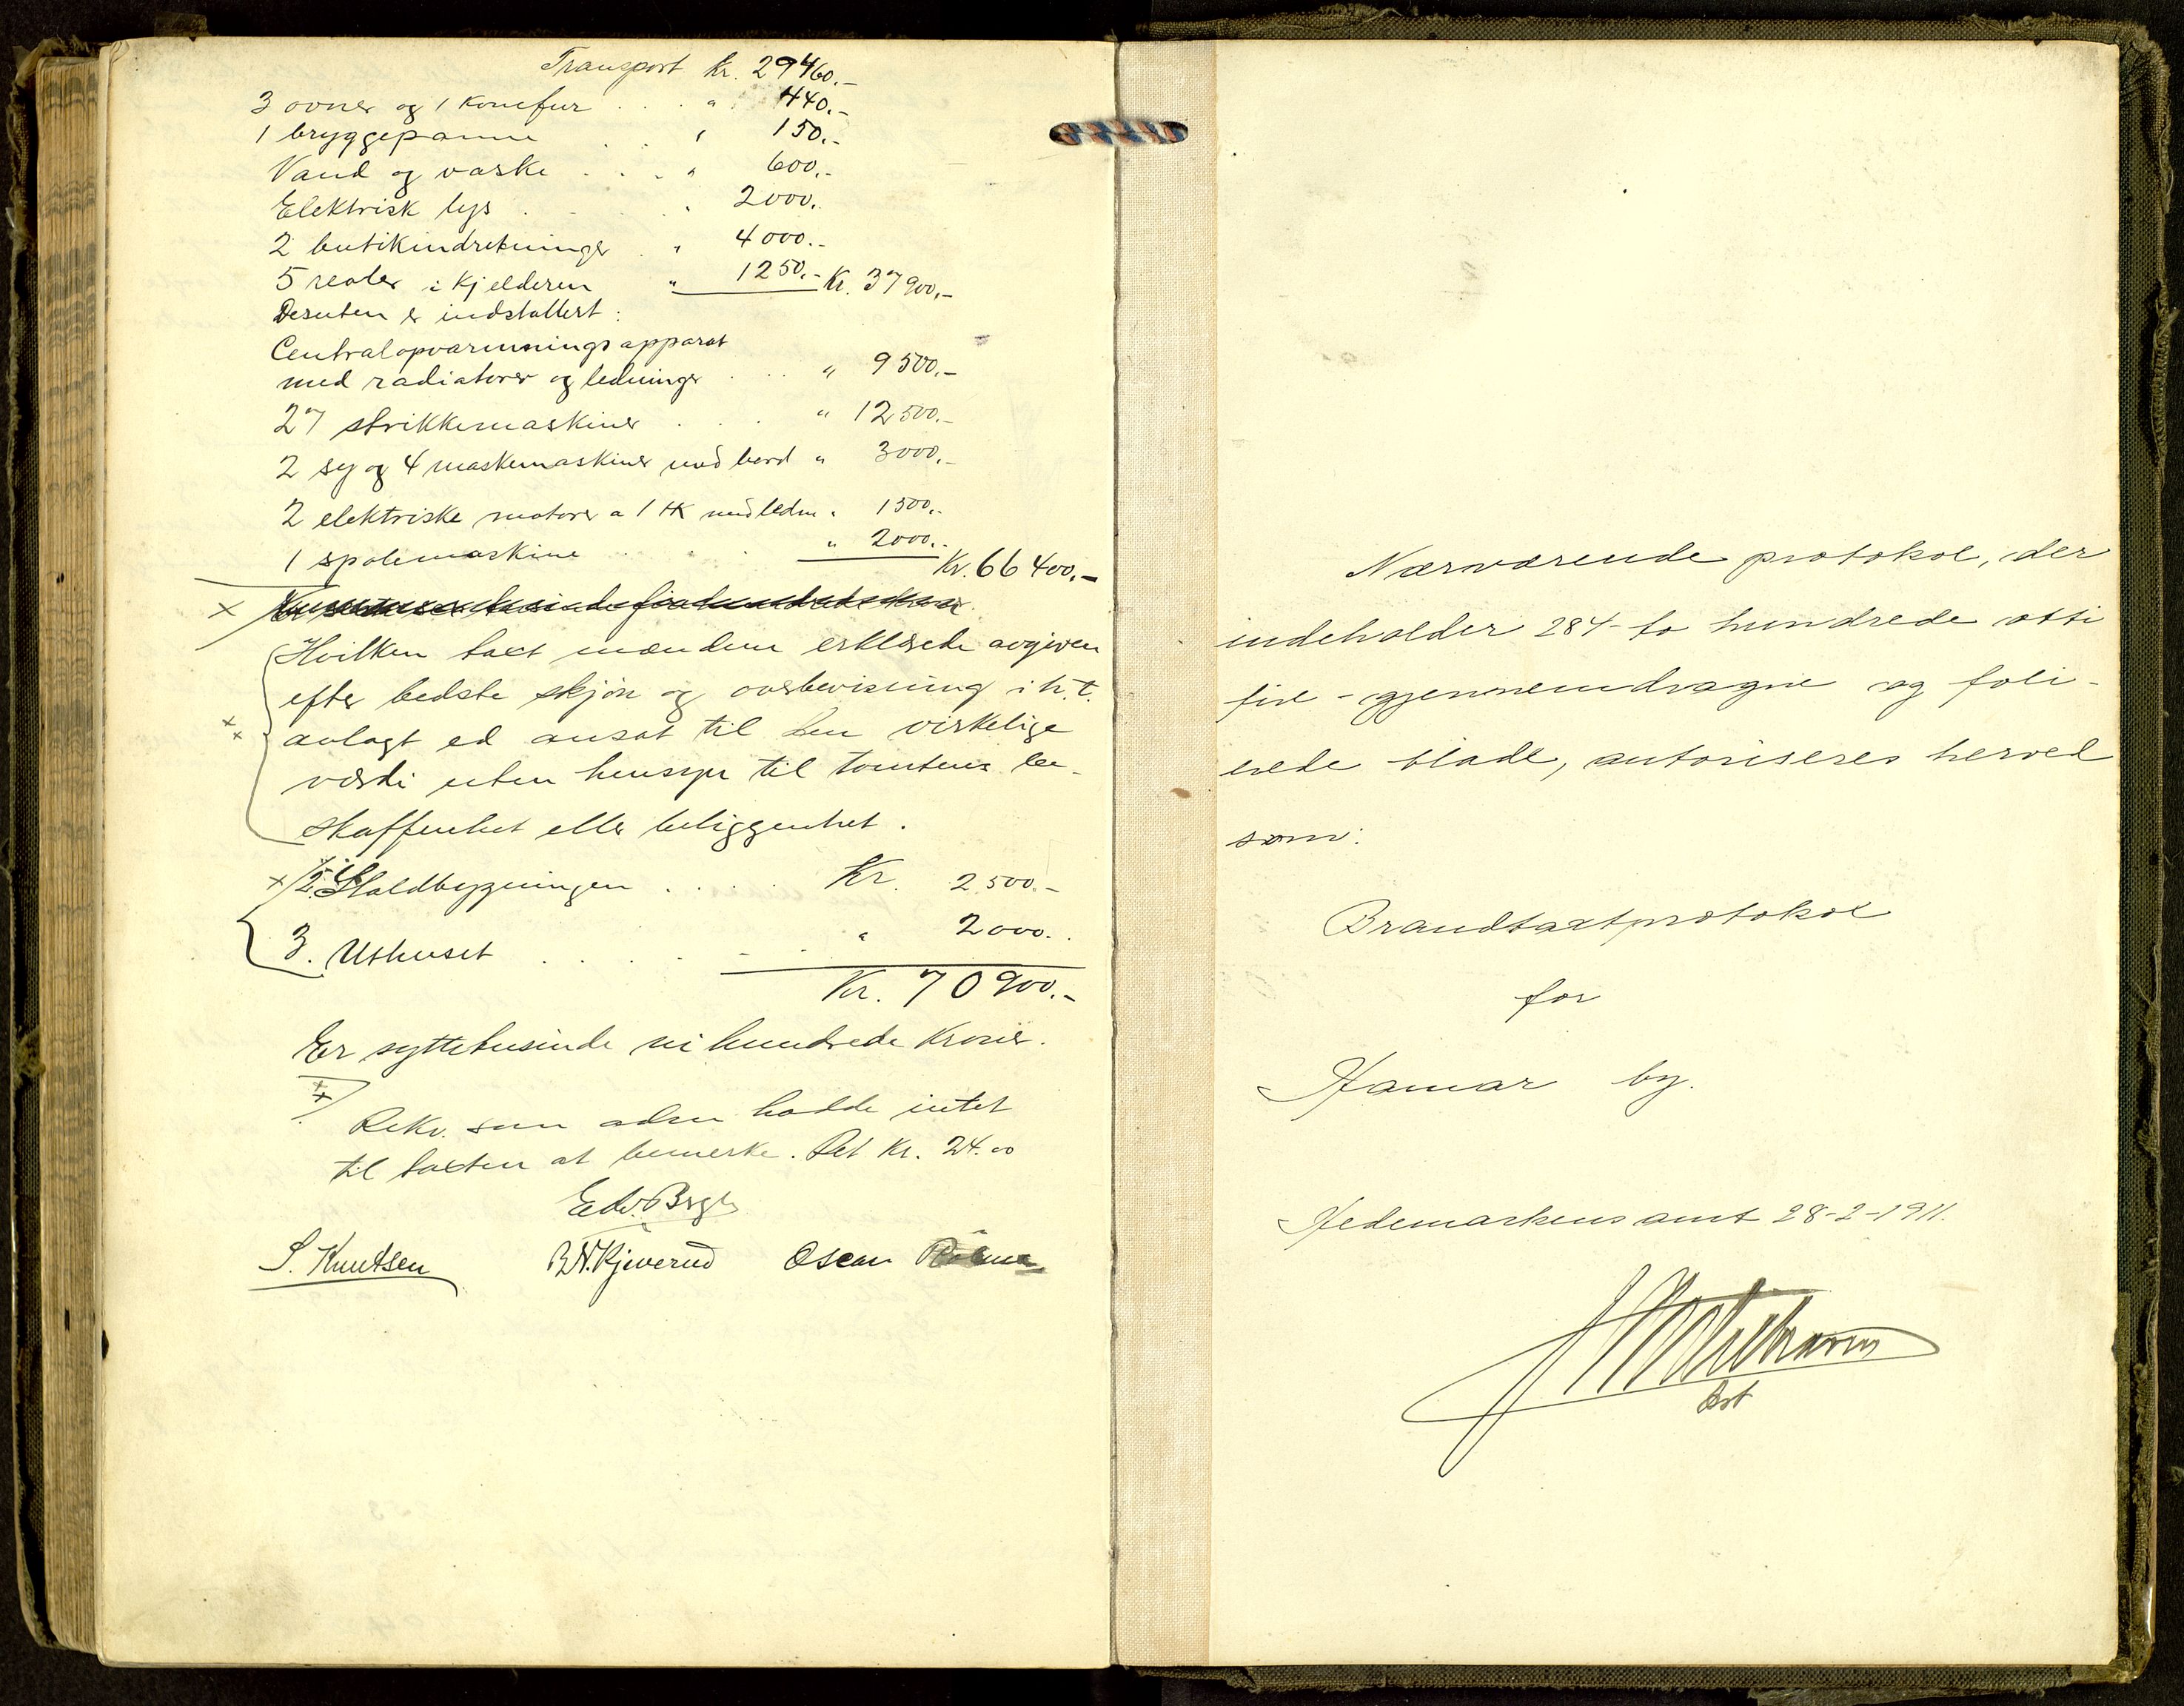 Transport Kr. 29460.-
3 ovner og 1 komfur . . . " 440.-
1 bryggepanne . . " 150.-
Vand og vaske . . . " 600.-
Elektrisk lys . . . " 2000.
2 butikindretninger . " 4000.-
5 reoler i kjelderen " 1250.- Kr. 37900.-
Desuten er indstallert:
Centralopvarmningsapparat
med radiatorer og ledninger . . . " 9500.-
27 strikkemaskiner . . . " 12500.-
2 sy og 4 maskemaskiner med bord " 3000.-
2 elektriske motorer a 1 HK med ledn " 1500.-
1 spolemaskine . . . " 2000.-
Kr. 66400.-
Hvilken taxt mændene erklærede avgiven
efter bedste skjøn og overbevisning i h.t.
avlagt ed ansat til den virkelige
værdi uten hensyn til tomtens be-
skaffenhet eller beliggenhet.
2. Staldbygningen . . . . Kr. 2500.-
3. Uthuset . . . . . " 2000.-
Kr. 70900.-
Er syttitusinde ni hundrede kroner.
Rekv. som adm hadde intet
til taxten at bemerke. Bet Kr. 24.00
Edv. Bergh
S. Knutsen B.N. Kjeverud Oscar
Nærværende protokol, der
indeholder 284 - to hundrede otti
fire - gjennemdragne og foli-
erede blade, autoriseres herved
som:
Brandtaxtprotokol
for
Hamar by.
Hedemarkens amt 28-2-1911.